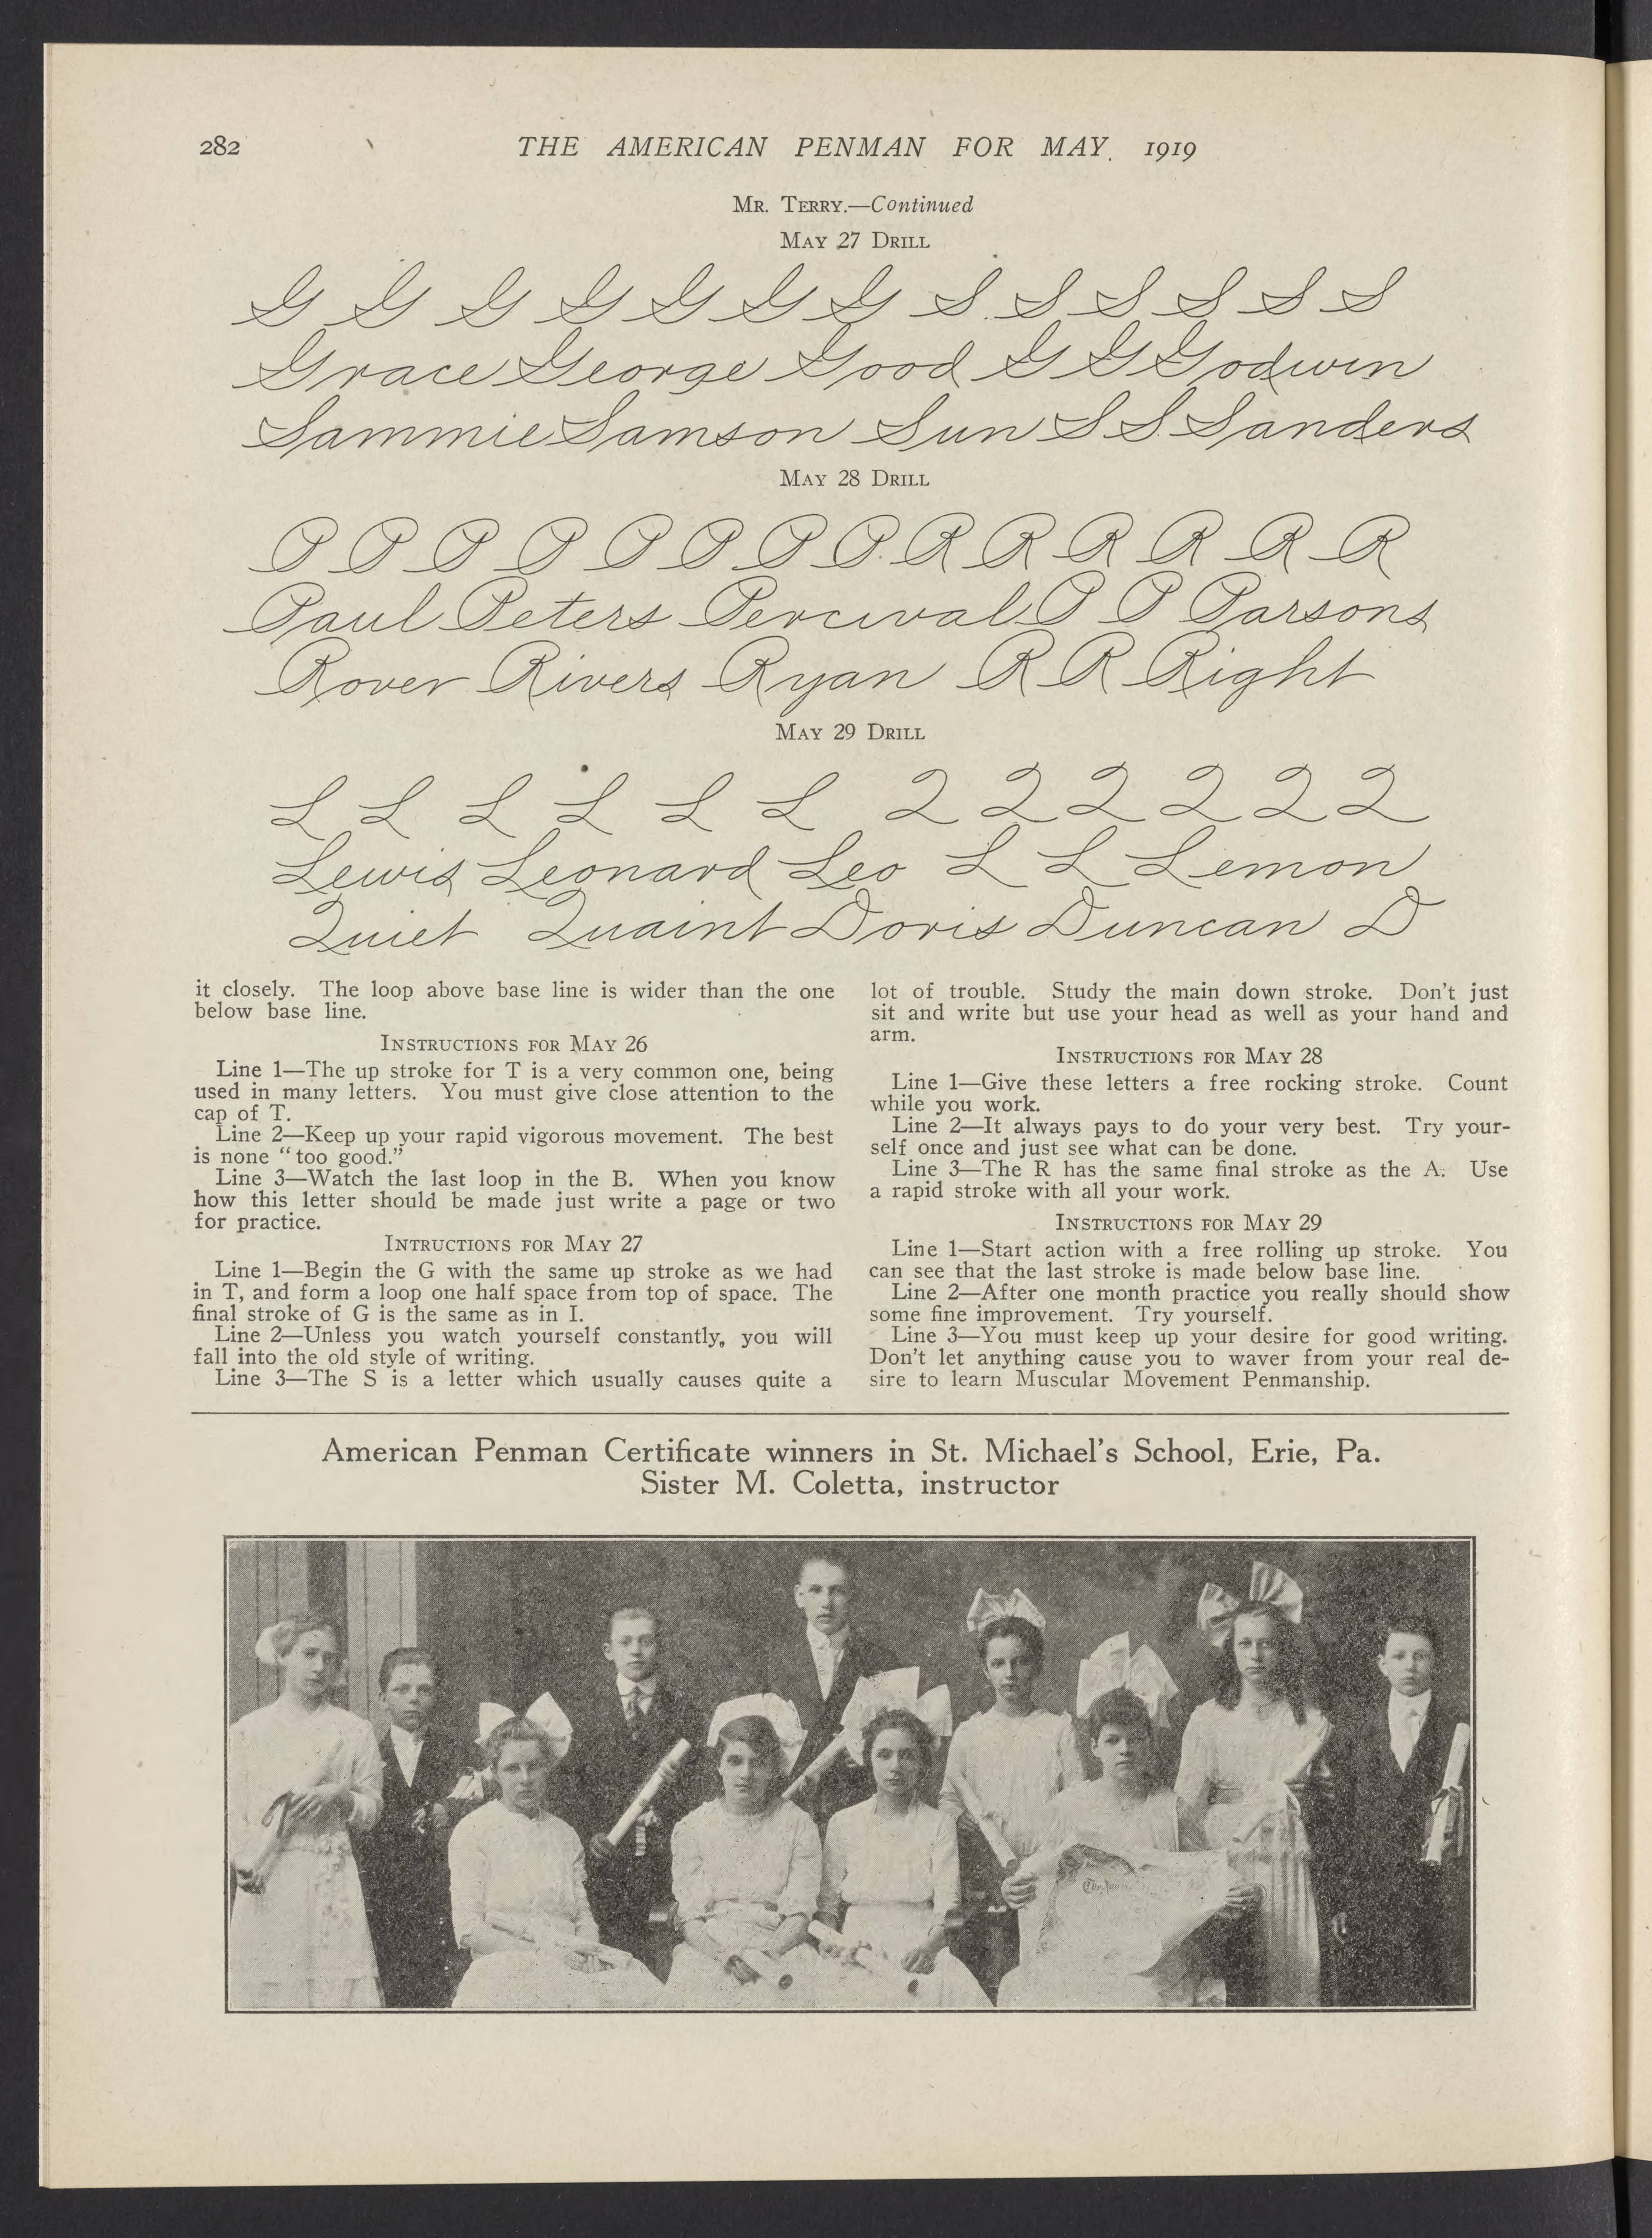 282
THE AMERICAN PENMAN FOR MAY. 1919
MR. TERRY.—Continued
MAY 27 DRILL
G G G G G G G S S S S S S
Grace George Good G G Godwin
Sammie Samson Sun S S Sanders
MAY 28 DRILL
P P P P P P P P R R R R R R
Paul Peters Percival P P Parsons
Rover Rivers Ryan R R Right
MAY 29 DRILL
L L L L L L 2 2 2 2 2 2
Lewis Leonard Leo L L Lemon
Quiet Quaint Doris Duncan D
it closely. The loop above base line is wider than the one
below base line.
INSTRUCTIONS FOR MAY 26
Line 1—The up stroke for T is a very common one, being
used in many letters. You must give close attention to the
cap of T.
Line 2—Keep up your rapid vigorous movement. The best
is none “too good.”
Line 3—Watch the last loop in the B. When you know
how this letter should be made just write a page or two
for practice.
INTRUCTIONS FOR MAY 27
Line 1—Begin the G with the same up stroke as we had
in T, and form a loop one half space from top of space. The
final stroke of G is the same as in I.
Line 2—Unless you watch yourself constantly, you will
fall into the old style of writing.
Line 3—The S is a letter which usually causes quite a
lot of trouble. Study the main down stroke. Don't just
sit and write but use your head as well as your hand and
arm.
INSTRUCTIONS FOR MAY 28
Line 1—Give these letters a free rocking stroke. Count
while you work.
Line 2—It always pays to do your very best. Try your-
self once and just see what can be done.
Line 3—The R has the same final stroke as the A. Use
a rapid stroke with all your work.
INSTRUCTIONS FOR MAY 29
Line 1—Start action with a free rolling up stroke. You
can see that the last stroke is made below base line.
Line 2—After one month practice you really should show
some fine improvement. Try yourself.
Line 3—You must keep up your desire for good writing.
Don't let anything cause you to waver from your real de-
sire to learn Muscular Movement Penmanship.
American Penman Certificate winners in St. Michael's School, Erie, Pa.
Sister M. Coletta, instructor